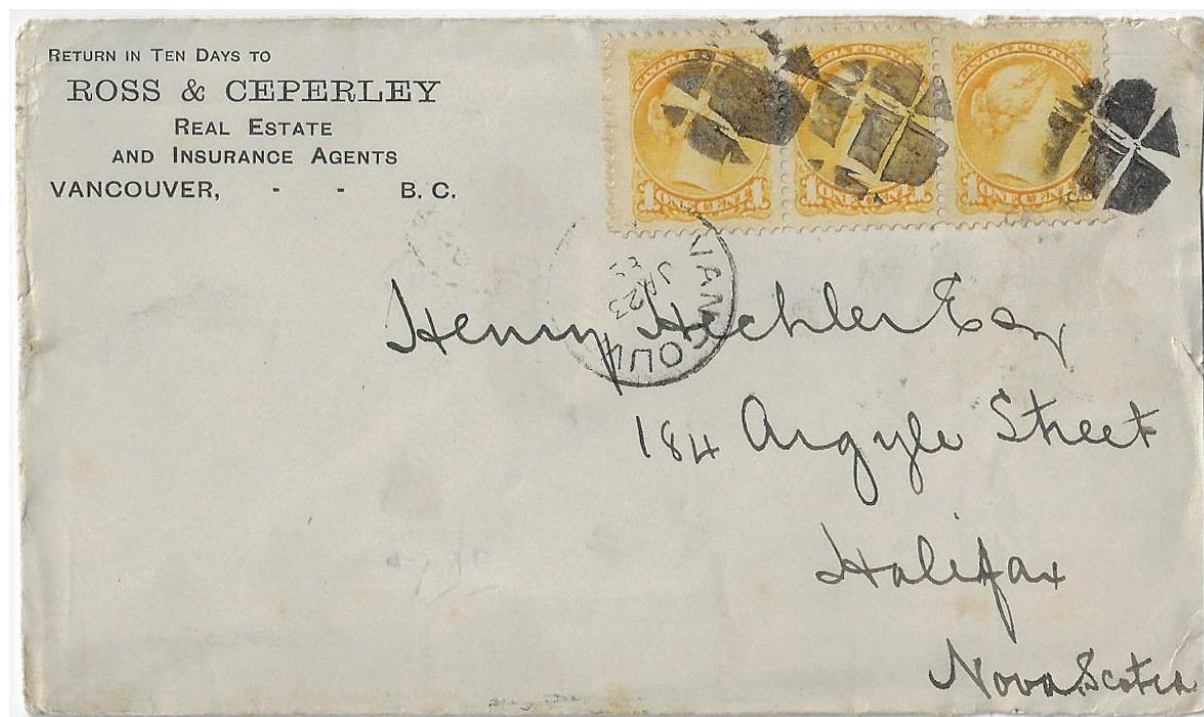 RETURN IN TEN DAYS TO
ROSS & CEPERLEY
REAL ESTATE
AND INSURANCE AGENTS
VANCOUVER, - - B. C.
CANADA POSTAGE
1 ONE CENT 1
1 ONE CENT 1
CANADA POSTAGE
1 ONE CENT
JA 23
Henry Hechler Esq
184 Argyle Street
Halifax
Nova Scotia